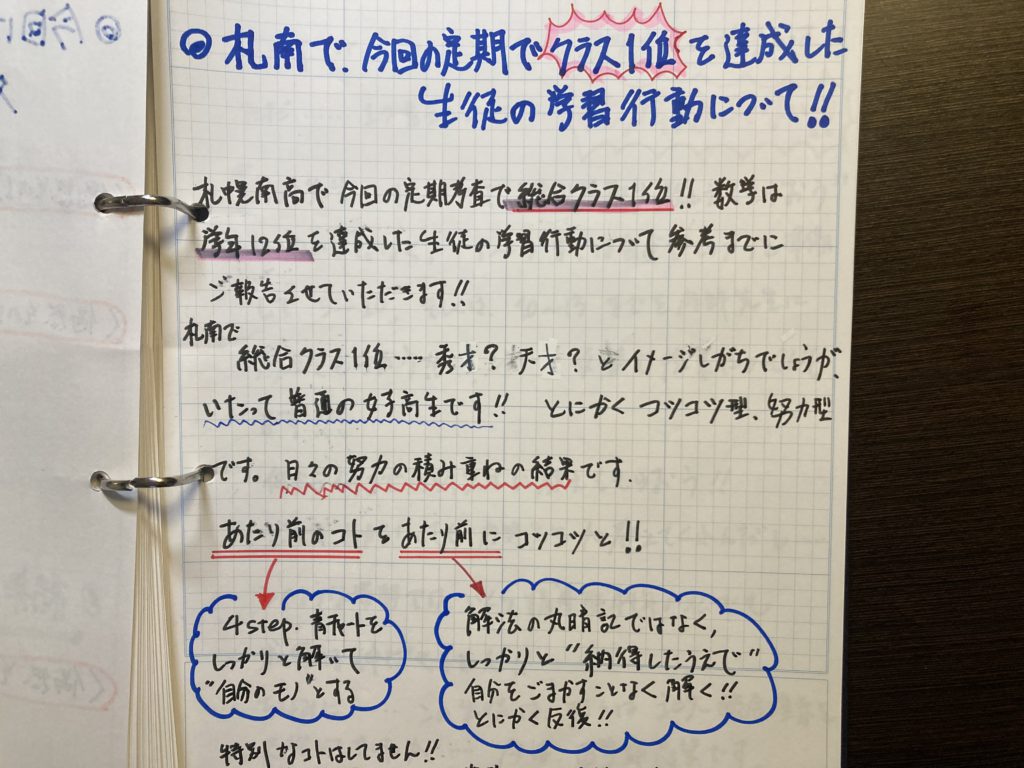 ◎札南で、今回の定期でクラス1位を達成した
生徒の学習行動について!!
札幌南高で今回の定期考査で総合クラス1位!! 数学は
学年12位を達成した生徒の学習行動について参考までに
ご報告させていただきます!!
札南で
総合クラス1位……秀才?天才?とイメージしがちでしょうが、
いたって普通の女子高生です!! とにかくコツコツ型、努力型
です。日々の努力の積み重ねの結果です.
あたり前のコトをあたり前にコツコツと!!
4step.青チャートを
しっかりと解いて
"自分のモノ"とする
解法の丸暗記ではなく,
しっかりと"納得したうえで"
自分をごまかすことなく解く!!
とにかく反復!!
特別なコトはしてません!!